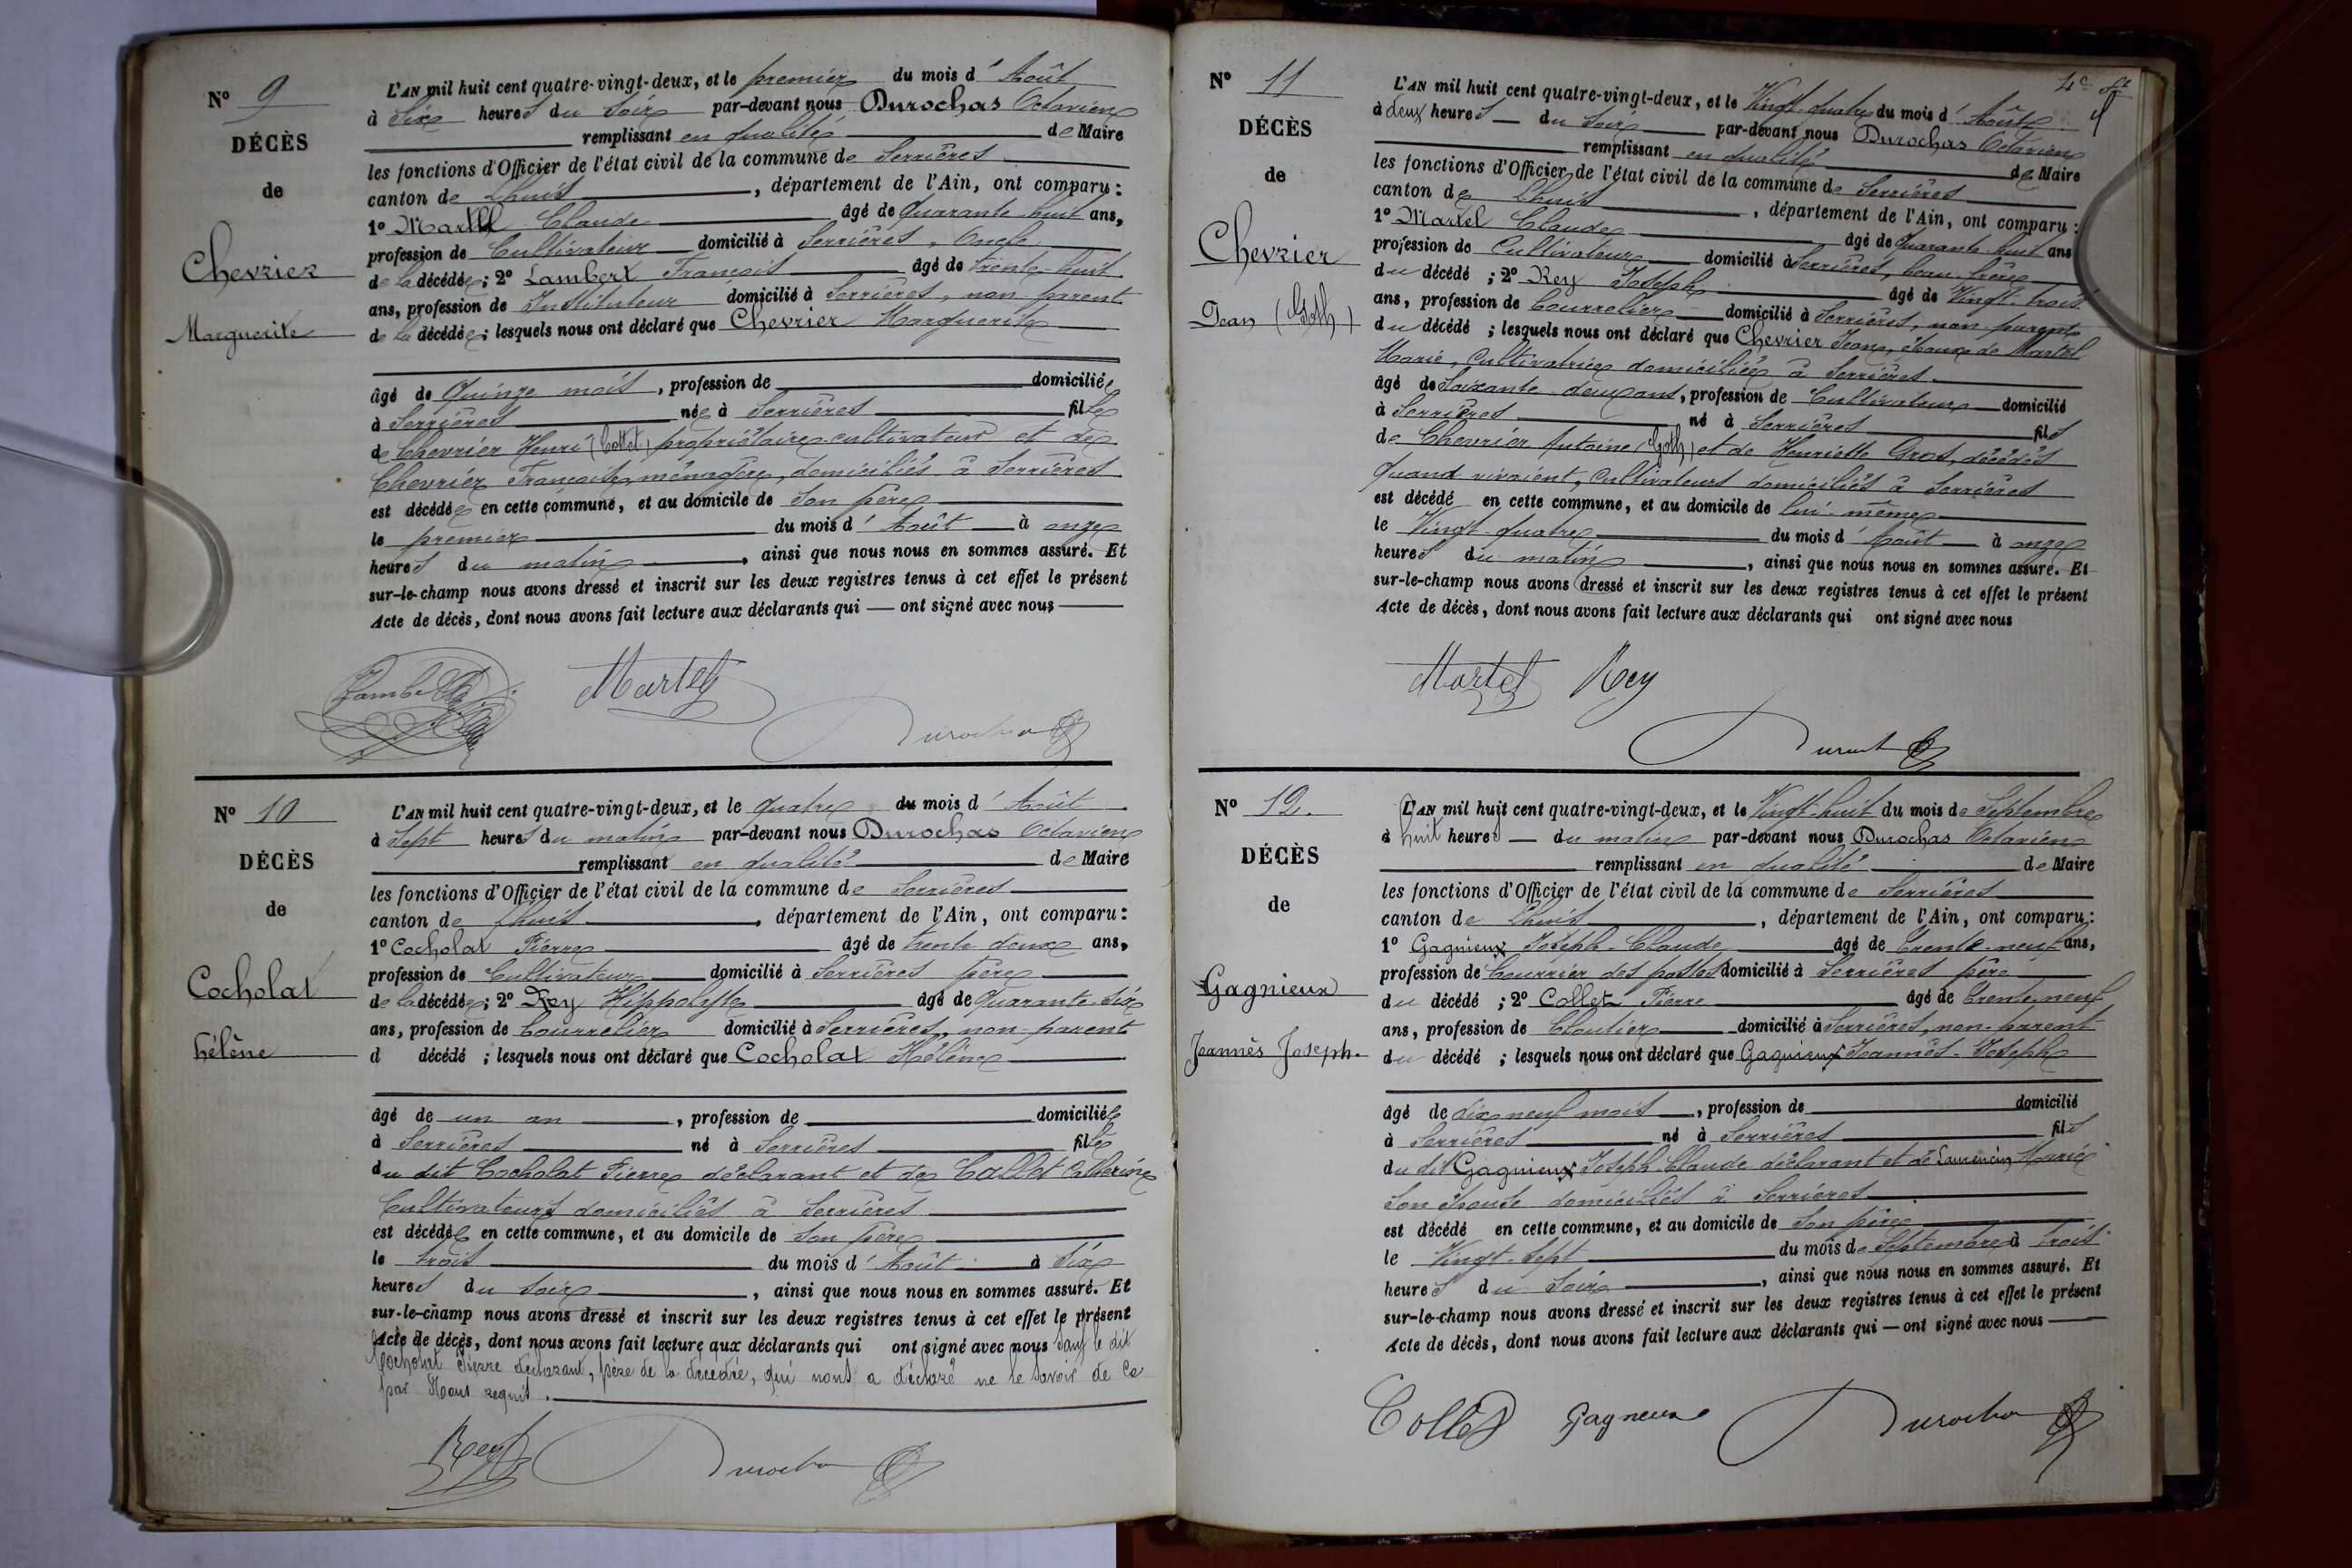 N° 9
DÉCÈS
de
Chevrier
Marguerite
L'AN mil huit cent quatre-vingt-deux, et le premier du mois d'Août
à Six heures du Soir par-devant nous Durochas Octavien
remplissant en qualité de Maire
les fonctions d'Officier de l'état civil de la commune de Serrières
canton de Lhuis, département de l'Ain, ont comparu:
1° Martel Claude âgé de Quarante-huit ans,
profession de Cultivateur domicilié à Serrières, Oncle
de la décédée; 2° Lambert François âgé de trente-huit
ans, profession de Instituteur domicilié à Serrières, non-parent
de la décédée; lesquels nous ont déclaré que Chevrier Marguerite
âgé de Quinze mois, profession de domiciliée
à Serrières née à Serrières fille
de Chevrier Henri (Collet) propriétaire-cultivateur et de
Chevrier Françoise, ménagère, domiciliés à Serrières
est décédée en cette commune, et au domicile de Son père
le premier du mois d'Août à onze
heures du matin, ainsi que nous nous en sommes assuré. Et
sur-le-champ nous avons dressé et inscrit sur les deux registres tenus à cet effet le présent
Acte de décès, dont nous avons fait lecture aux déclarants qui — ont signé avec nous
Lambert Martel
Durochas
N° 10
DÉCÈS
de
Cocholat
hélène
L'AN mil huit cent quatre-vingt-deux, et le quatre du mois d'Août
à Sept heures du matin par-devant nous Durochas Octavien
remplissant en qualité de Maire
les fonctions d'Officier de l'état civil de la commune de Serrières
canton de Lhuis, département de l'Ain, ont comparu:
1° Cocholat Pierre âgé de trente deux ans,
profession de Cultivateur domicilié à Serrières père
de la décédée; 2° Rey Hippolyte âgé de Quarante-Six
ans, profession de Bourrelier domicilié à Serrières, non-parent
d décédé; lesquels nous ont déclaré que Cocholat Hélène
âgé de un an, profession de domiciliée
à Serrières né à Serrières fille
du dit Cocholat Pierre déclarant et de Callet Catherine
Cultivateurs domiciliés à Serrières
est décédée en cette commune, et au domicile de Son père
le trois du mois d'Août à Six
heures du Soir, ainsi que nous nous en sommes assuré. Et
sur-le-champ nous avons dressé et inscrit sur les deux registres tenus à cet effet le présent
Acte de décès, dont nous avons fait lecture aux déclarants qui ont signé avec nous sauf le dit
Cocholat Pierre déclarant, père de la décédée, qui nous a déclaré ne le savoir de ce
par Nous requis.
Rey Durochas
4e ft
N° 11
DÉCÈS
de
Chevrier
Jean (Goth)
L'AN mil huit cent quatre-vingt-deux, et le Vingt-quatre du mois d'Août
à deux heures — du Soir par-devant nous Durochas Octavien
remplissant en qualité de Maire
les fonctions d'Officier de l'état civil de la commune de Serrières
canton de Lhuis, département de l'Ain, ont comparu:
1° Martel Claude âgé de Quarante-huit ans
profession de Cultivateur domicilié à Serrières, beau-frère
du décédé; 2° Rey Joseph âgé de Vingt-trois
ans, profession de Bourrelier domicilié à Serrières, non-parent
du décédé; lesquels nous ont déclaré que Chevrier Jean, époux de Martel
Marie, Cultivatrice domiciliée à Serrières
âgé de Soixante-deux ans, profession de Cultivateur domicilié
à Serrières né à Serrières fils
de Chevrier Antoine (Goth) et de Henriette Gros, décédés
quand vivaient, Cultivateurs domiciliés à Serrières
est décédé en cette commune, et au domicile de lui-même
le Vingt-quatre du mois d'Août à onze
heures du matin, ainsi que nous nous en sommes assuré. Et
sur-le-champ nous avons dressé et inscrit sur les deux registres tenus à cet effet le présent
Acte de décès, dont nous avons fait lecture aux déclarants qui ont signé avec nous
Martel Rey
Durochas
N° 12.
DÉCÈS
de
Gagnieux
Joannès Joseph.
L'AN mil huit cent quatre-vingt-deux, et le Vingt-huit du mois de Septembre
à huit heures — du matin par-devant nous Durochas Octavien
remplissant en qualité de Maire
les fonctions d'Officier de l'état civil de la commune de Serrières
canton de Lhuis, département de l'Ain, ont comparu:
1° Gagnieux Joseph-Claude âgé de Trente-neuf ans,
profession de Courrier des postes domicilié à Serrières père
du décédé; 2° Collet Pierre âgé de Trente-neuf
ans, profession de Cloutier domicilié à Serrières, non-parent
du décédé; lesquels nous ont déclaré que Gagnieux Joannès-Joseph
âgé de dix-neuf mois, profession de domicilié
à Serrières né à Serrières fils
du dit Gagnieux Joseph-Claude déclarant et de Laurencin Marie
Son épouse domiciliés à Serrières
est décédé en cette commune, et au domicile de Son père
le Vingt-Sept du mois de Septembre à trois
heures du Soir, ainsi que nous nous en sommes assuré. Et
sur-le-champ nous avons dressé et inscrit sur les deux registres tenus à cet effet le présent
Acte de décès, dont nous avons fait lecture aux déclarants qui — ont signé avec nous
Collet Gagneux Durochas